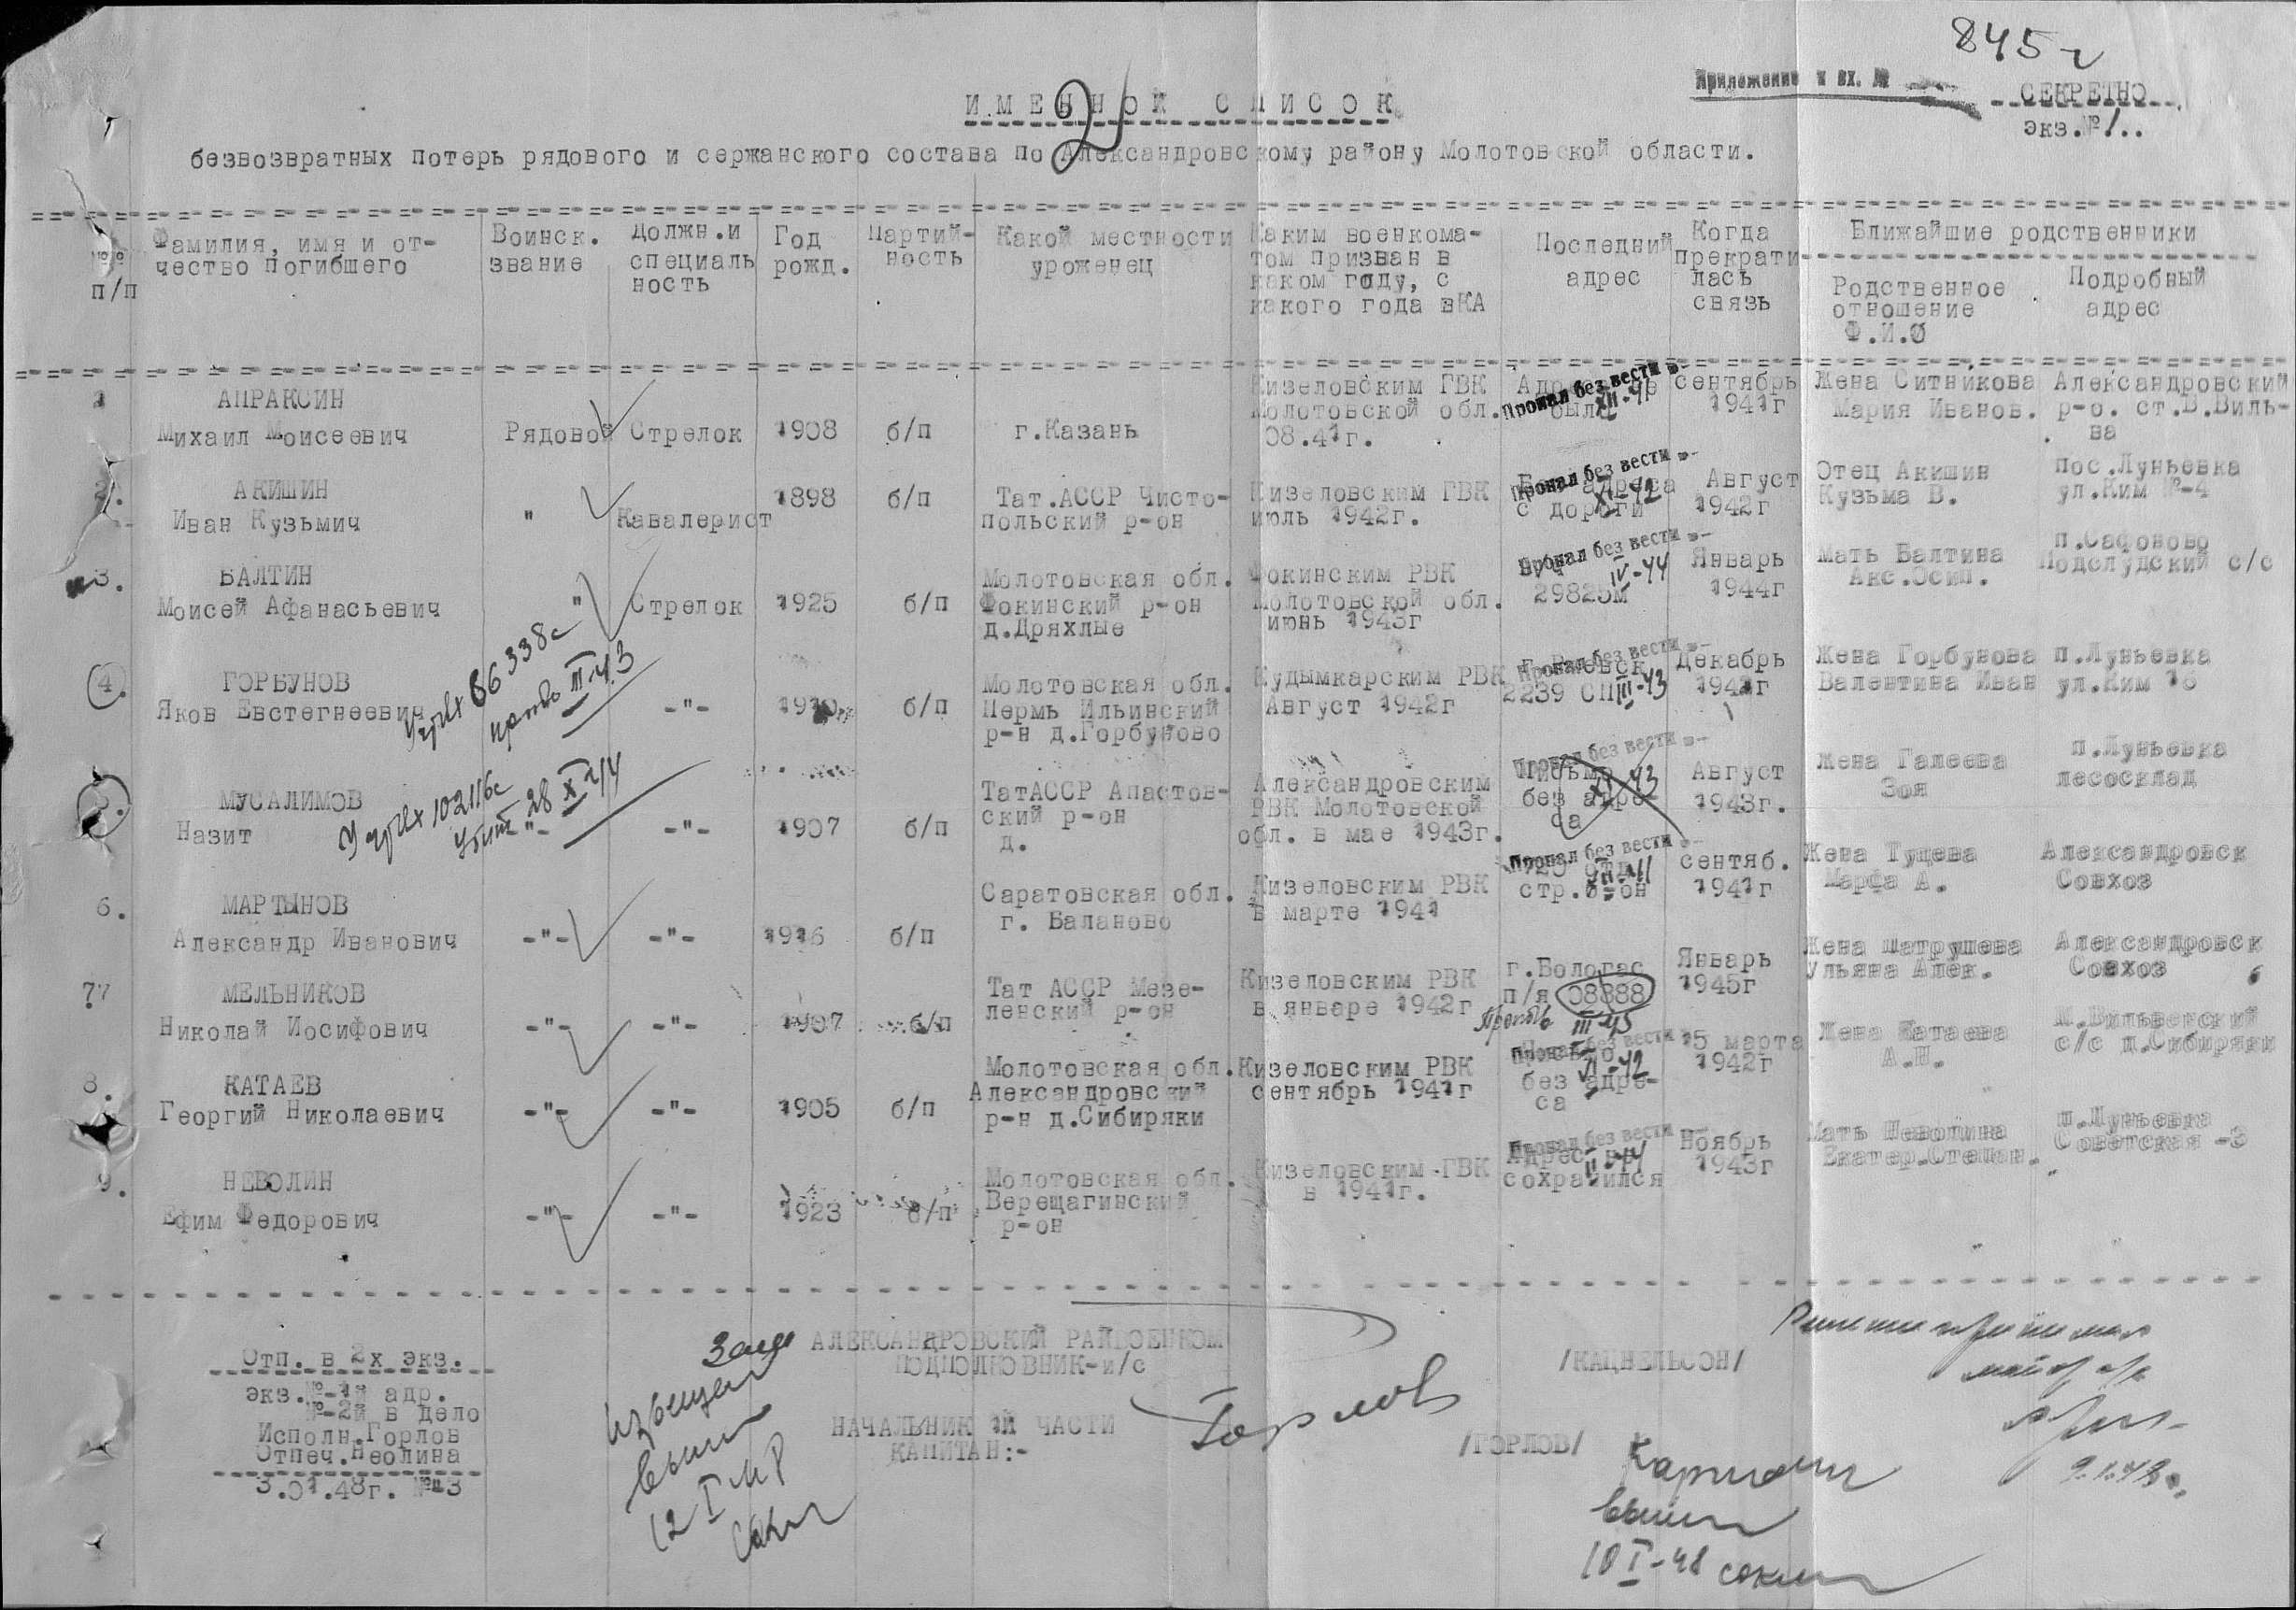 845
Приложение к вх. №
СЕКРЕТНО
экз.№1..
ИМЕННОЙ СПИСОК
2
безвозвратных потерь рядового и сержанского состава по Александровскому району Молотовской области.
№№ п/п
Фамилия, имя и от-
чество погибшего
Воинск.
звание
Должн.и
специаль
ность
Год
рожд.
Партий-
ность
Какой местности
уроженец
Каким военкома-
том призван в
каком году, с
какого года вКА
Последний
адрес
Когда
прекрати
лась
связь
Ближайшие родственники
Родственное
отношение
Ф.И.О
Подробный
адрес
1
АПРАКСИН
Михаил Моисеевич
Рядовой
Стрелок
1908
б/п
г.Казань
Кизеловским ГВК
Молотовской обл.
08.41г.
Пропал без вести
XII-41
сентябрь
1941г
Жена Ситникова
Мария Иванов.
Александровский
р-о. ст.В.Виль-
ва
2.
АКИШИН
Иван Кузьмич
"
Кавалерист
1898
б/п
Тат.АССР Чисто-
польский р-он
Кизеловским ГВК
июль 1942г.
Пропал без вести
Без адреса
с дороги
XI-42
Август
1942г
Отец Акишин
Кузьма В.
пос.Луньевка
ул.Ким №-4
3.
БАЛТИН
Моисей Афанасьевич
"
Стрелок
1925
б/п
Молотовская обл.
Фокинский р-он
д.Дряхлые
Фокинским РВК
Молотовской обл.
июнь 1943г
Пропал без вести
IV-44
29825м
Январь
1944г
Мать Балтина
Акс.Осип.
п.Сафоново
Подслудский с/с
4.
ГОРБУНОВ
Яков Евстегнеевич
86338с
III-43
-"-
1910
б/п
Молотовская обл.
Пермь Ильинский
р-н д.Горбуново
Кудымкарским РВК
Август 1942г
Пропал без вести
2239 СП
III-43
Декабрь
1942г
Жена Горбунова
Валентина Иван
п.Луньевка
ул.Ким 18
5.
МУСАЛИМОВ
Назит
102116с
убит 28 X 44
-"-
-"-
1907
б/п
ТатАССР Апастов-
ский р-он
д.
Александровским
РВК Молотовской
обл. в мае 1943г.
Пропал без вести
письмо
без адре-
са
XI-43
Август
1943г.
Жена Галеева
Зоя
п.Луньевка
лесосклад
6.
МАРТЫНОВ
Александр Иванович
-"-
-"-
1916
б/п
Саратовская обл.
г. Баланово
Кизеловским РВК
в марте 1941
Пропал без вести
стр.б-он
сентяб.
1941г
Жена Тущева
Марфа А.
Александровск
Совхоз
7
МЕЛЬНИКОВ
Николай Иосифович
-"-
-"-
1907
б/п
Тат АССР Мезе-
ленский р-он
Кизеловским РВК
в январе 1942г
г.Вологас
п/я 08888
III-45
Январь
1945г
Жена Матрушева
Ульяна Алек.
Александровск
Совхоз
8.
КАТАЕВ
Георгий Николаевич
-"-
-"-
1905
б/п
Молотовская обл.
Александровский
р-н д.Сибиряки
Кизеловским РВК
сентябрь 1941г
Пропал без вести
без адре-
са
VI-42
15 марта
1942г
Жена Катаева
А.Н.
М.Вильвенский
с/с д.Сибиряки
9.
НЕВОЛИН
Ефим Федорович
-"-
-"-
1923
б/п
Молотовская обл.
Верещагинский
р-он
Кизеловским ГВК
в 1941г.
Пропал без вести
Адрес не
сохранился
II-44
Ноябрь
1943г
Мать Неволина
Екатер.Степан.
п.Луньевка
Советская -3
АЛЕКСАНДРОВСКИЙ РАЙВОЕНКОМ
ПОДПОЛКОВНИК-и/с
/КАЦНЕЛЬСОН/
НАЧАЛЬНИК 1Й ЧАСТИ
КАПИТАН:-
Горлов
/ГОРЛОВ/
Отп. в 2х экз.
экз.№-1й адр.
№-2й в дело
Исполн.Горлов
Отпеч.Неолина
3.01.48г. №п3
извещен
12 I
10 I-48
9.1.48